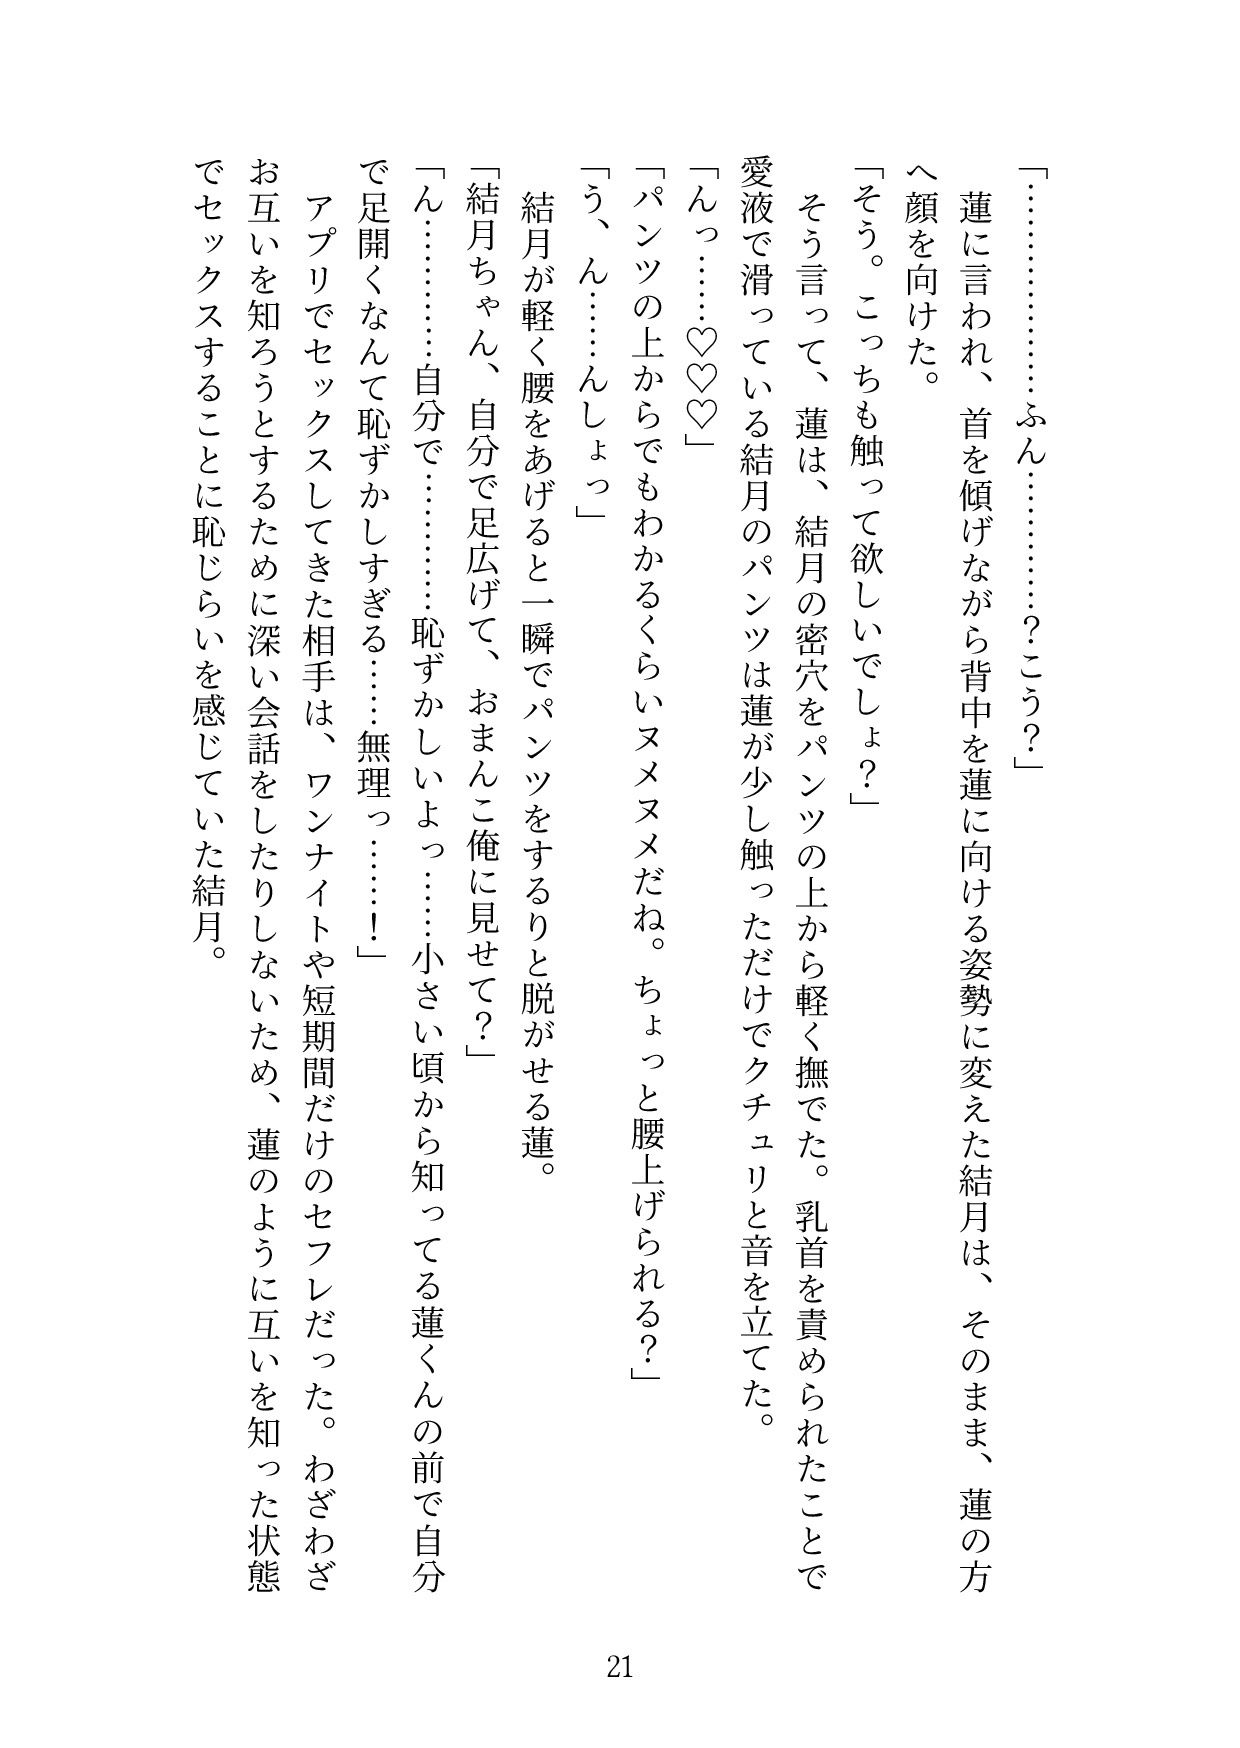 「………………ふん…………？こう？」
　蓮に言われ、首を傾げながら背中を蓮に向ける姿勢に変えた結月は、そのまま、蓮の方
へ顔を向けた。
「そう。こっちも触って欲しいでしょ？」
　そう言って、蓮は、結月の密穴をパンツの上から軽く撫でた。乳首を責められたことで
愛液で滑っている結月のパンツは蓮が少し触っただけでクチュリと音を立てた。
「んっ……♡♡♡」
「パンツの上からでもわかるくらいヌメヌメだね。ちょっと腰上げられる？」
「う、ん……んしょっ」
　結月が軽く腰をあげると一瞬でパンツをするりと脱がせる蓮。
「結月ちゃん、自分で足広げて、おまんこ俺に見せて？」
「ん…………自分で…………恥ずかしいよっ……小さい頃から知ってる蓮くんの前で自分
で足開くなんて恥ずかしすぎる……無理っ……！」
　アプリでセックスしてきた相手は、ワンナイトや短期間だけのセフレだった。わざわざ
お互いを知ろうとするために深い会話をしたりしないため、蓮のように互いを知った状態
でセックスすることに恥じらいを感じていた結月。
21